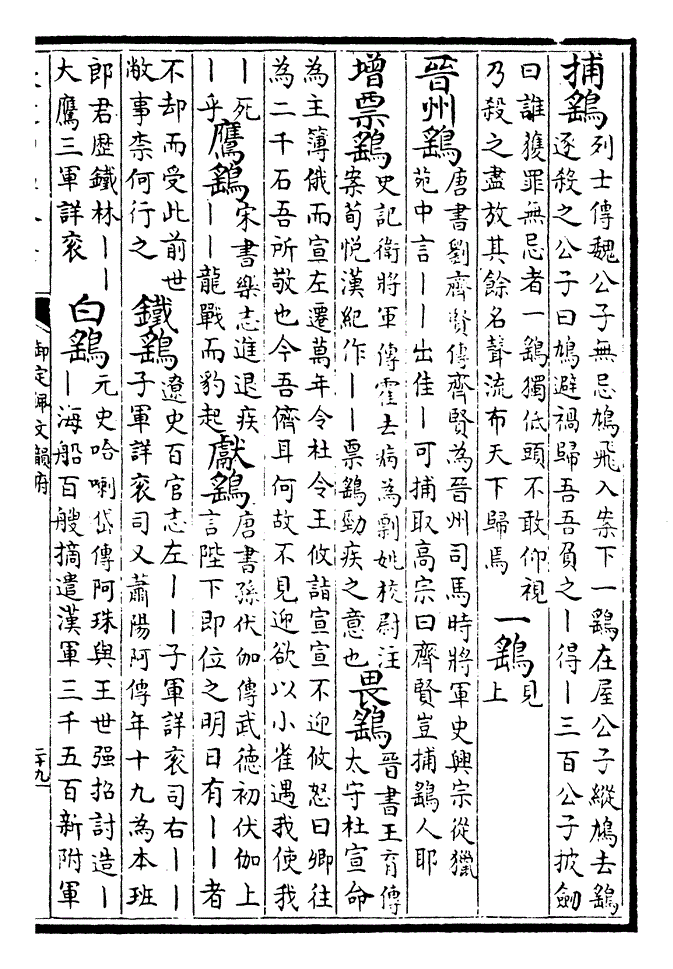 捕鷂
列士傳魏公子無忌鳩飛入案下一鷂在屋公子縱鳩去鷂
逐殺之公子曰鳩避禍歸吾吾負之丨得丨三百公子披劍
曰誰獲罪無忌者一鷂獨低頭不敢仰視
乃殺之盡放其餘名聲流布天下歸焉
一鷂
見
上
晉州鷂
唐書劉齊賢傳齊賢為晉州司馬時將軍史興宗從獵
苑中言丨丨出佳丨可捕取高宗曰齊賢豈捕鷂人耶
增票鷂
史記衛將軍傳霍去病為剽姚校尉注
案荀悅漢紀作丨丨票鷂勁疾之意也
畏鷂
晉書王育傳
太守杜宣命
為主簿俄而宣左遷萬年令杜令王攸詣宣宣不迎攸怒曰卿往
為二千石吾所敬也今吾儕耳何故不見迎欲以小雀遇我使我
丨死
丨乎
鷹鷂
宋書樂志進退疾
丨丨龍戰而豹起
獻鷂
唐書孫伏伽傳武德初伏伽上
言陛下即位之明日有丨丨者
不却而受此前世
敝事柰何行之
鐵鷂
遼史百官志左丨丨子軍詳衮司右丨丨
子軍詳衮司又蕭陽阿傳年十九為本班
郎君歴鐵林丨丨
大鷹三軍詳衮
白鷂
元史哈喇岱傳阿珠與王世强招討造丨
丨海船百艘摘遣漢軍三千五百新附軍
御定佩文韻府
二十九